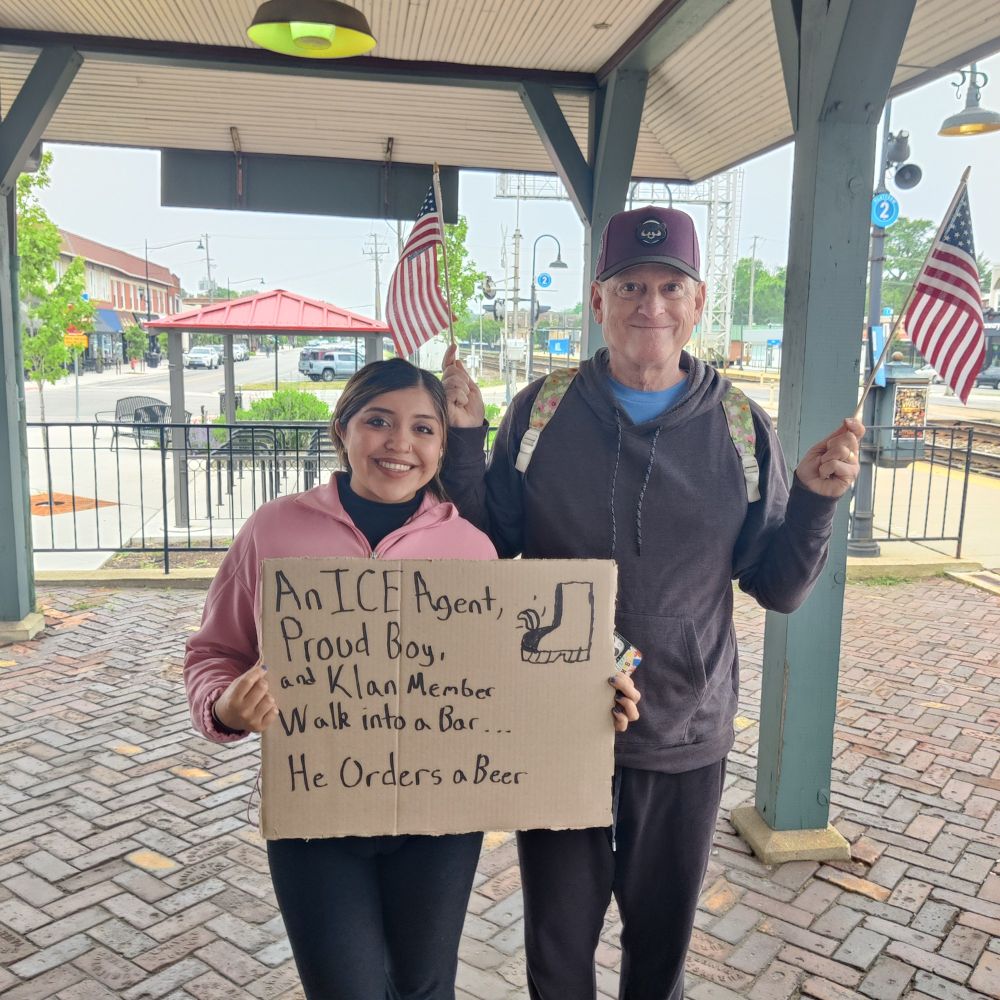 An ICE Agent,
Proud Boy,
and Klan Member
Walk into a Bar...
He Orders a Beer
2
2